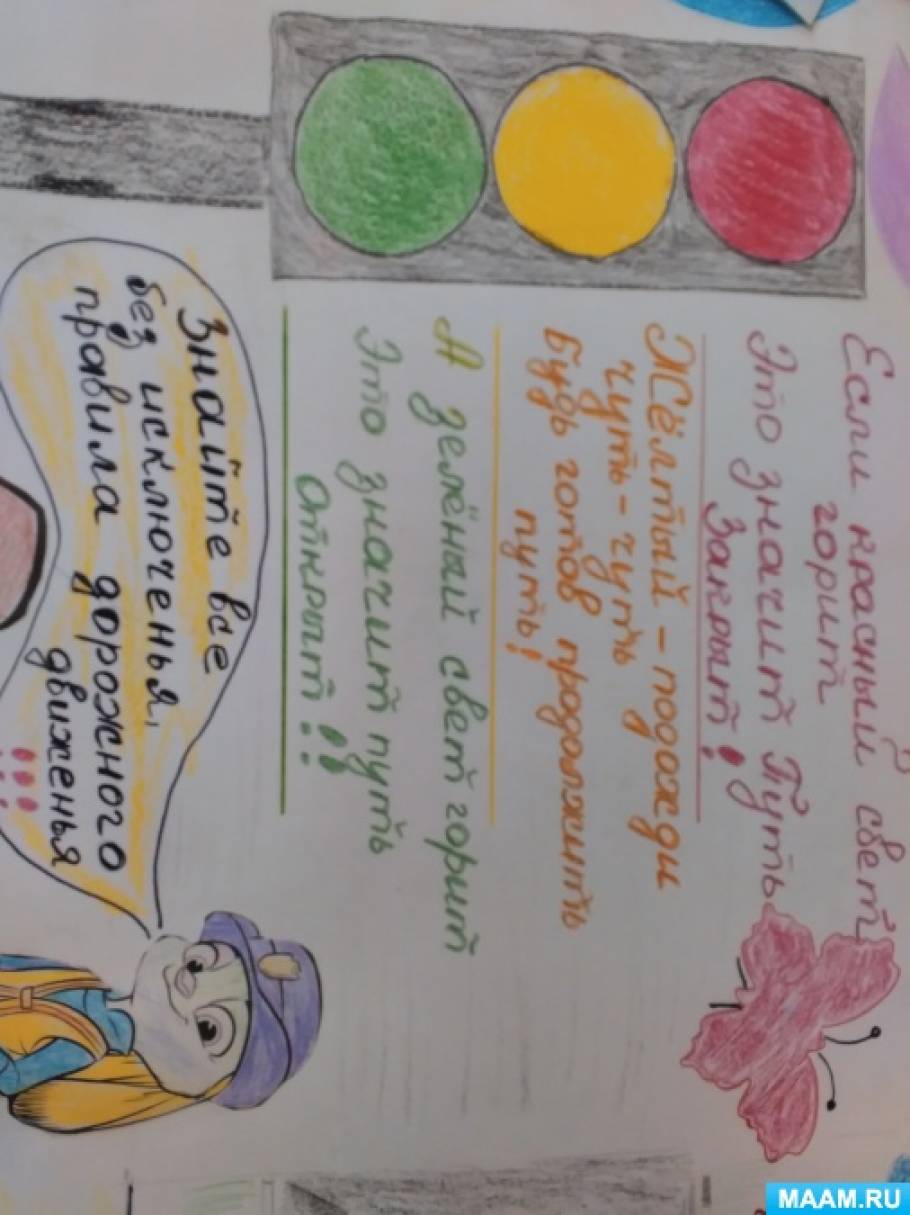 Если красный свет
горит
Это значит Путь
Закрыт!
Жёлтый - подожди
чуть-чуть
Будь готов продолжить
путь!
А зелёный свет горит
Это значит путь
Открыт!!
Знайте все
без исключенья,
правила дорожного
движенья
!!!
MAAM.RU